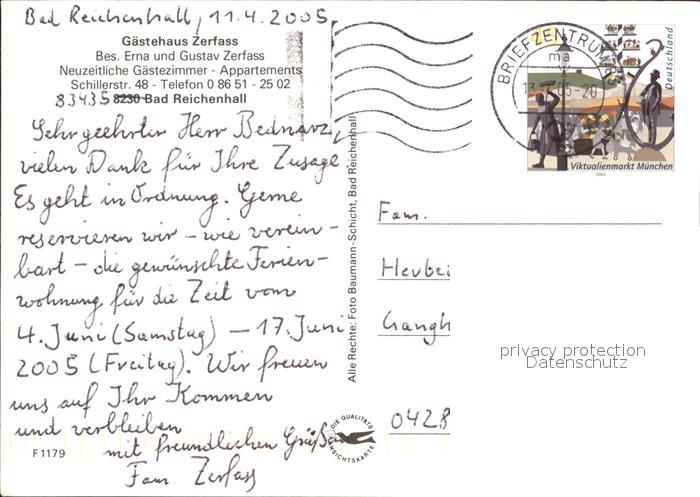 Bad Reichenhall, 11.4.2005
Gästehaus Zerfass
Bes. Erna und Gustav Zerfass
Neuzeitliche Gästezimmer - Appartements
Schillerstr. 48 - Telefon 0 86 51 - 25 02
83435 8230 Bad Reichenhall
Sehr geehrter Herr Bednarz,
vielen Dank für Ihre Zusage.
Es geht in Ordnung. Gerne
reservieren wir - wie verein-
bart - die gewünschte Ferien-
wohnung für die Zeit vom
4. Juni (Samstag) - 17. Juni
2005 (Freitag). Wir freuen
uns auf Ihr Kommen
und verbleiben
mit freundlichen Grüßen
Fam Zerfass
F 1179
Alle Rechte: Foto Baumann-Schicht, Bad Reichenhall
DIE QUALITÄTS
ANSICHTSKARTE
BRIEFZENTRUM
ma
05-20
Deutschland
Viktualienmarkt München
2003
Fam.
Heubei
Gangh
0428
privacy protection
Datenschutz